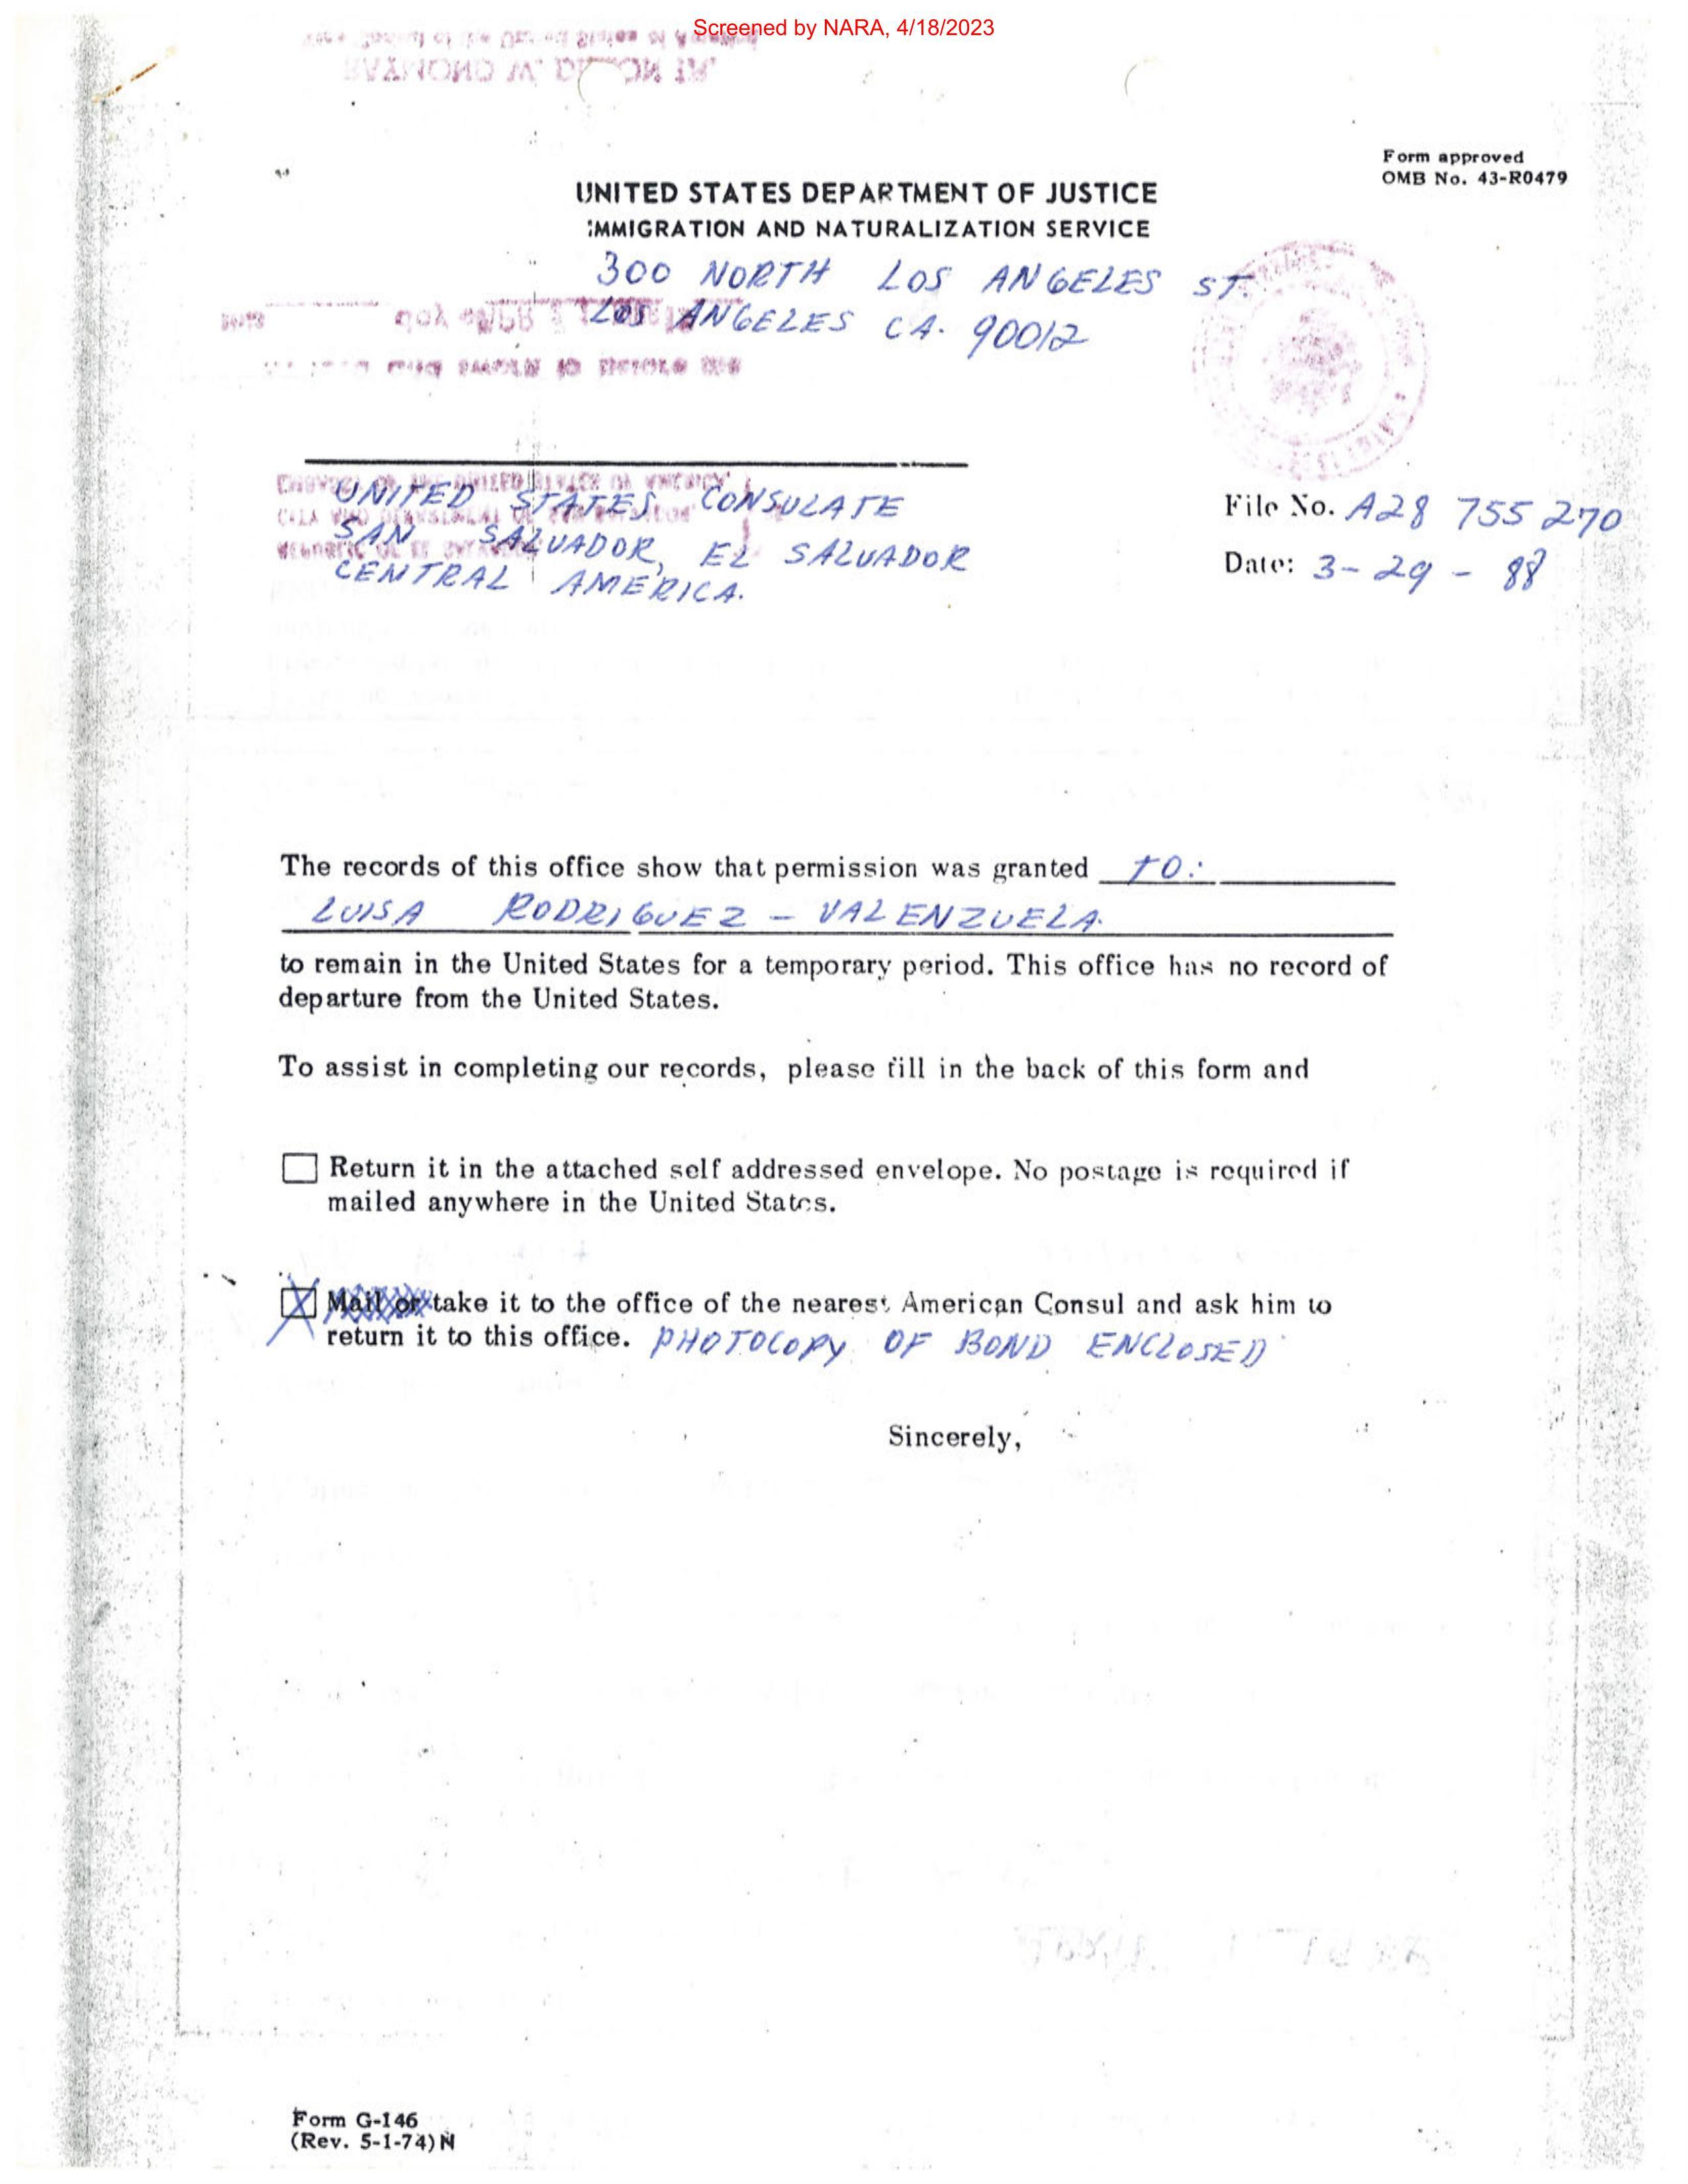 Screened by NARA, 4/18/2023
Form approved
OMB No. 43-R0479
UNITED STATES DEPARTMENT OF JUSTICE
IMMIGRATION AND NATURALIZATION SERVICE
300 NORTH LOS ANGELES ST.
LOS ANGELES CA. 90012
UNITED STATES CONSULATE
SAN SALVADOR, EL SALVADOR
CENTRAL AMERICA.
File No. A28 755 270
Date: 3-29-88
The records of this office show that permission was granted TO:
LUISA RODRIGUEZ - VALENZUELA.
to remain in the United States for a temporary period. This office has no record of
departure from the United States.
To assist in completing our records, please fill in the back of this form and
Return it in the attached self addressed envelope. No postage is required if
mailed anywhere in the United States.
X Mail or take it to the office of the nearest American Consul and ask him to
return it to this office. PHOTOCOPY OF BOND ENCLOSED
Sincerely,
Form G-146
(Rev. 5-1-74)N